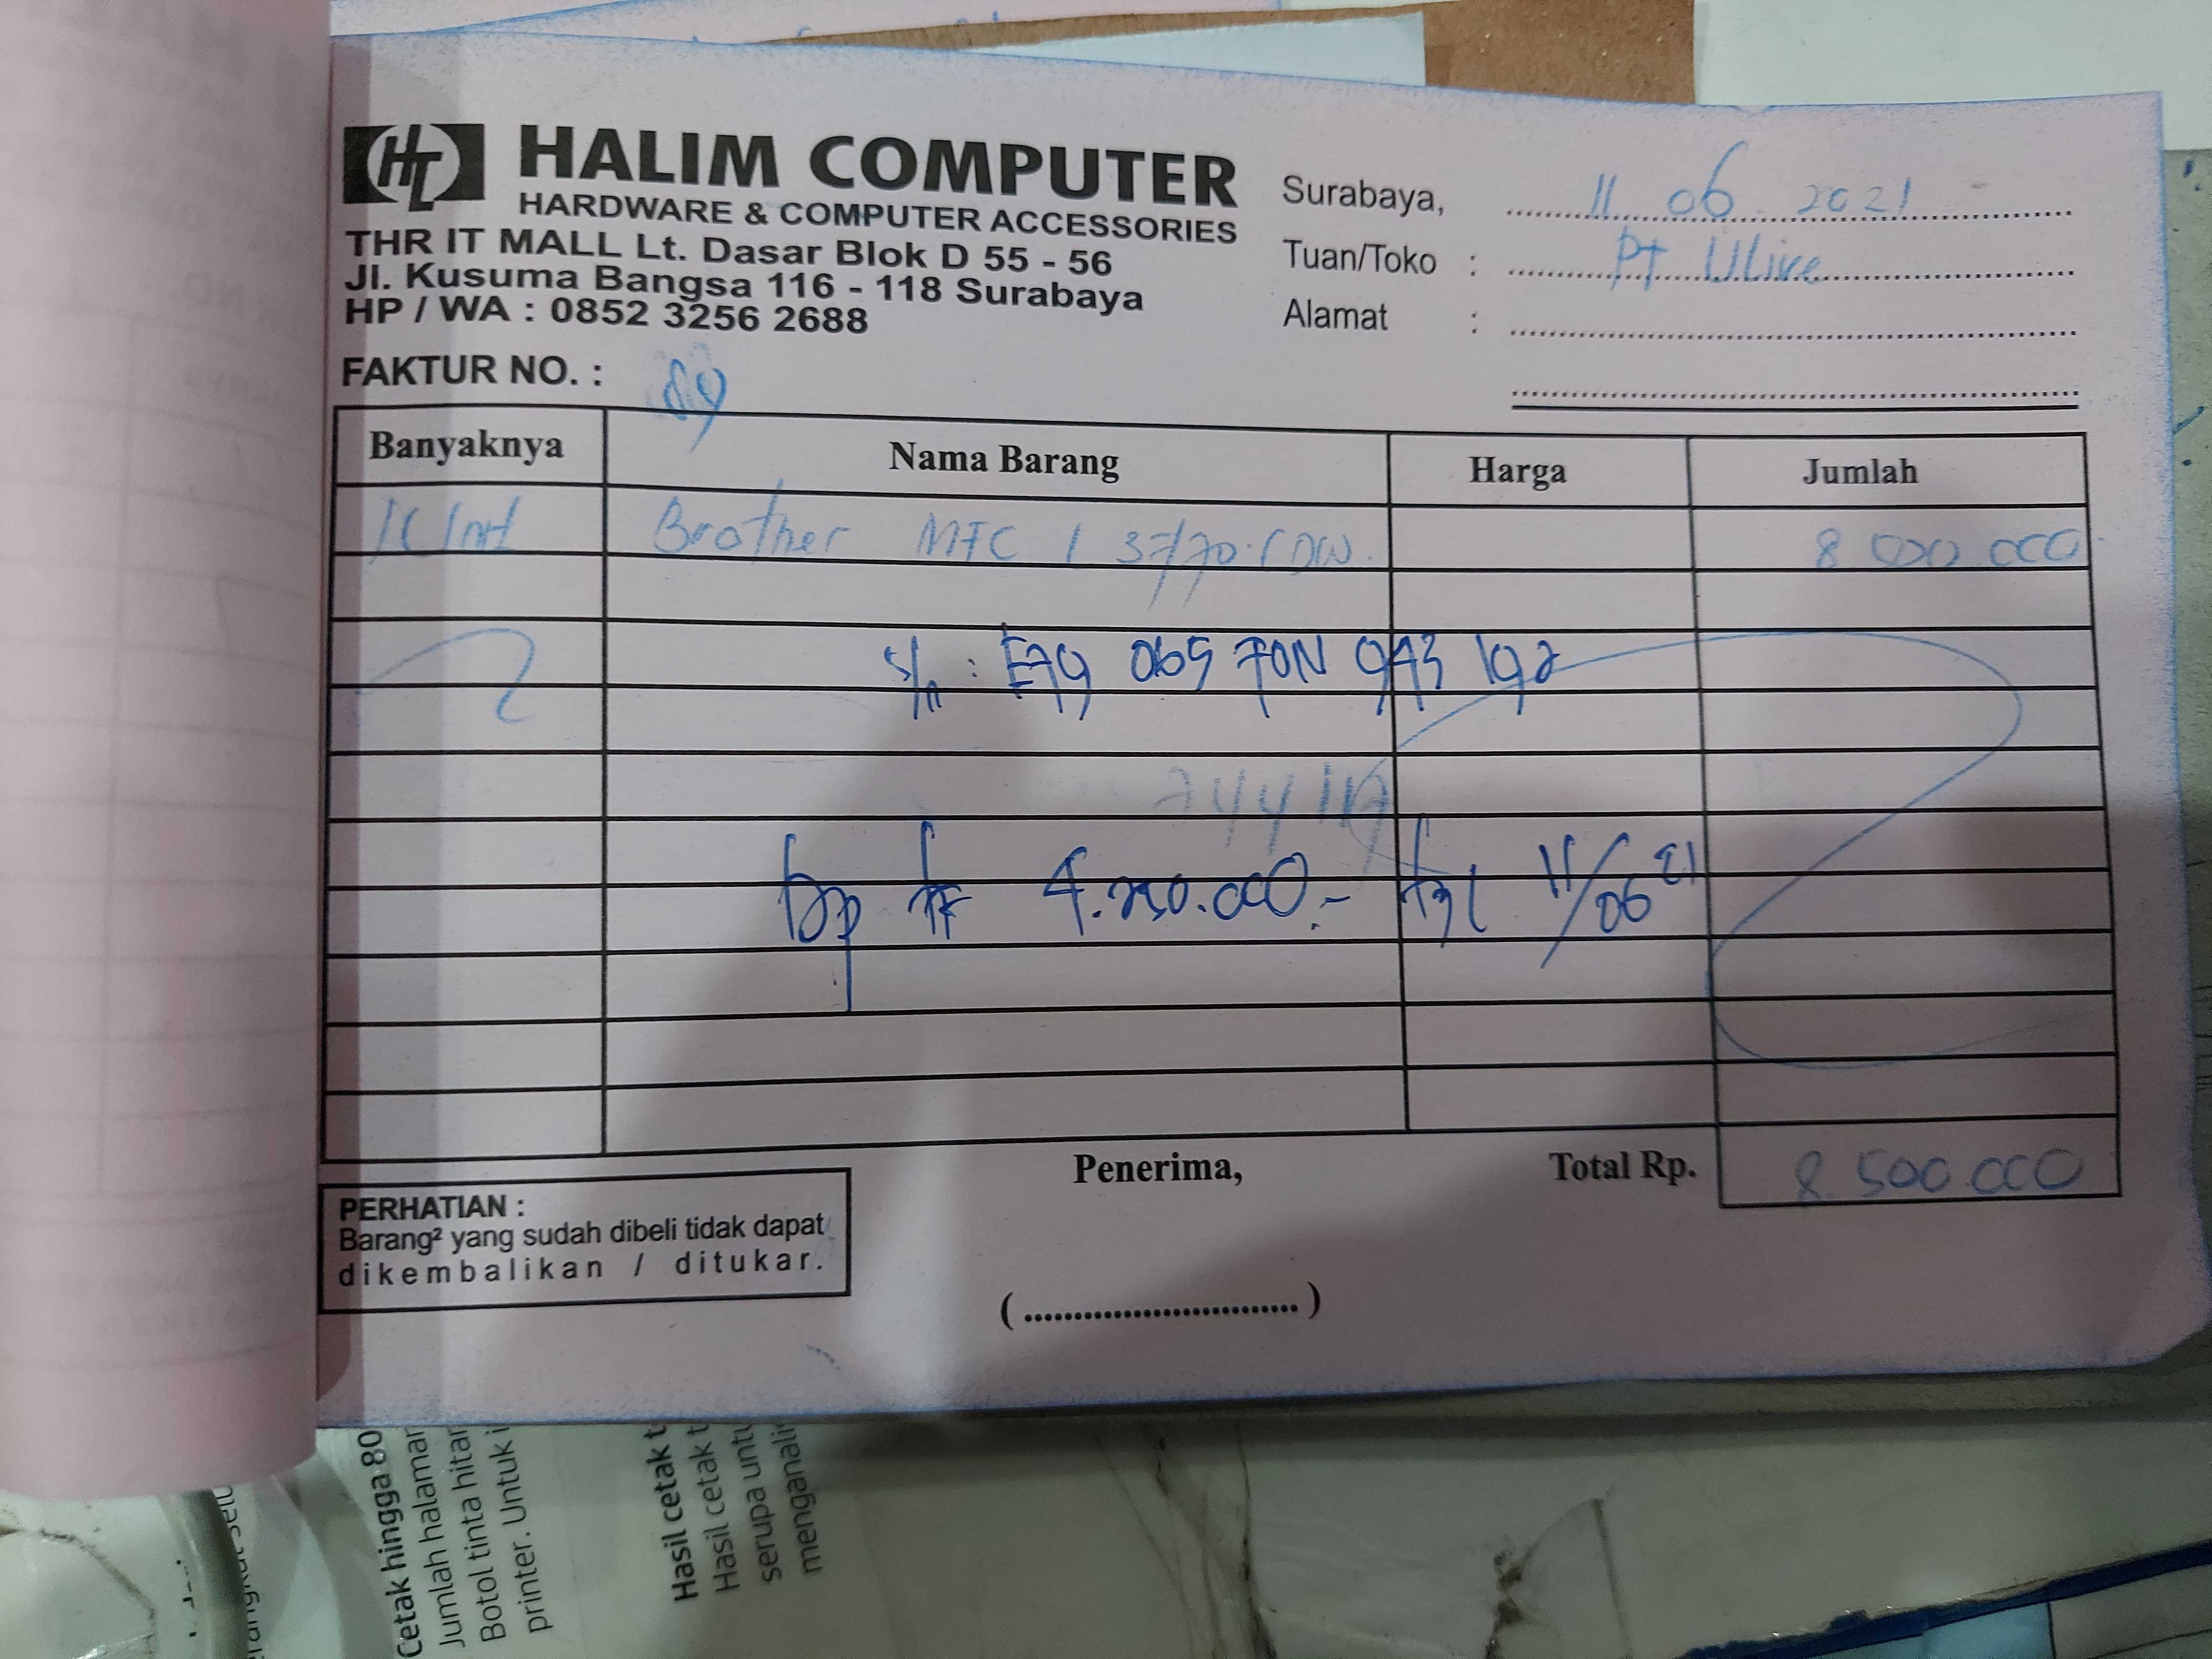 HL HALIM COMPUTER
HARDWARE & COMPUTER ACCESSORIES
THR IT MALL Lt. Dasar Blok D 55 - 56
Jl. Kusuma Bangsa 116 - 118 Surabaya
HP / WA : 0852 3256 2688
Surabaya, 11 06 2021
Tuan/Toko : PT Ulive
Alamat :
FAKTUR NO. :
Banyaknya Nama Barang Harga Jumlah
Brother MFC L 3770 CDW.
S/n : E79 065 70N 943 192
Dp TF 4.250.000.- Tgl 11/06 21
Penerima, Total Rp. 8.500.000
PERHATIAN :
Barang² yang sudah dibeli tidak dapat
dikembalikan / ditukar.
(..............................)
Cetak hingga 80
Jumlah halaman
Botol tinta hitam
printer. Untuk
Hasil cetak
Hasil cetak
serupa